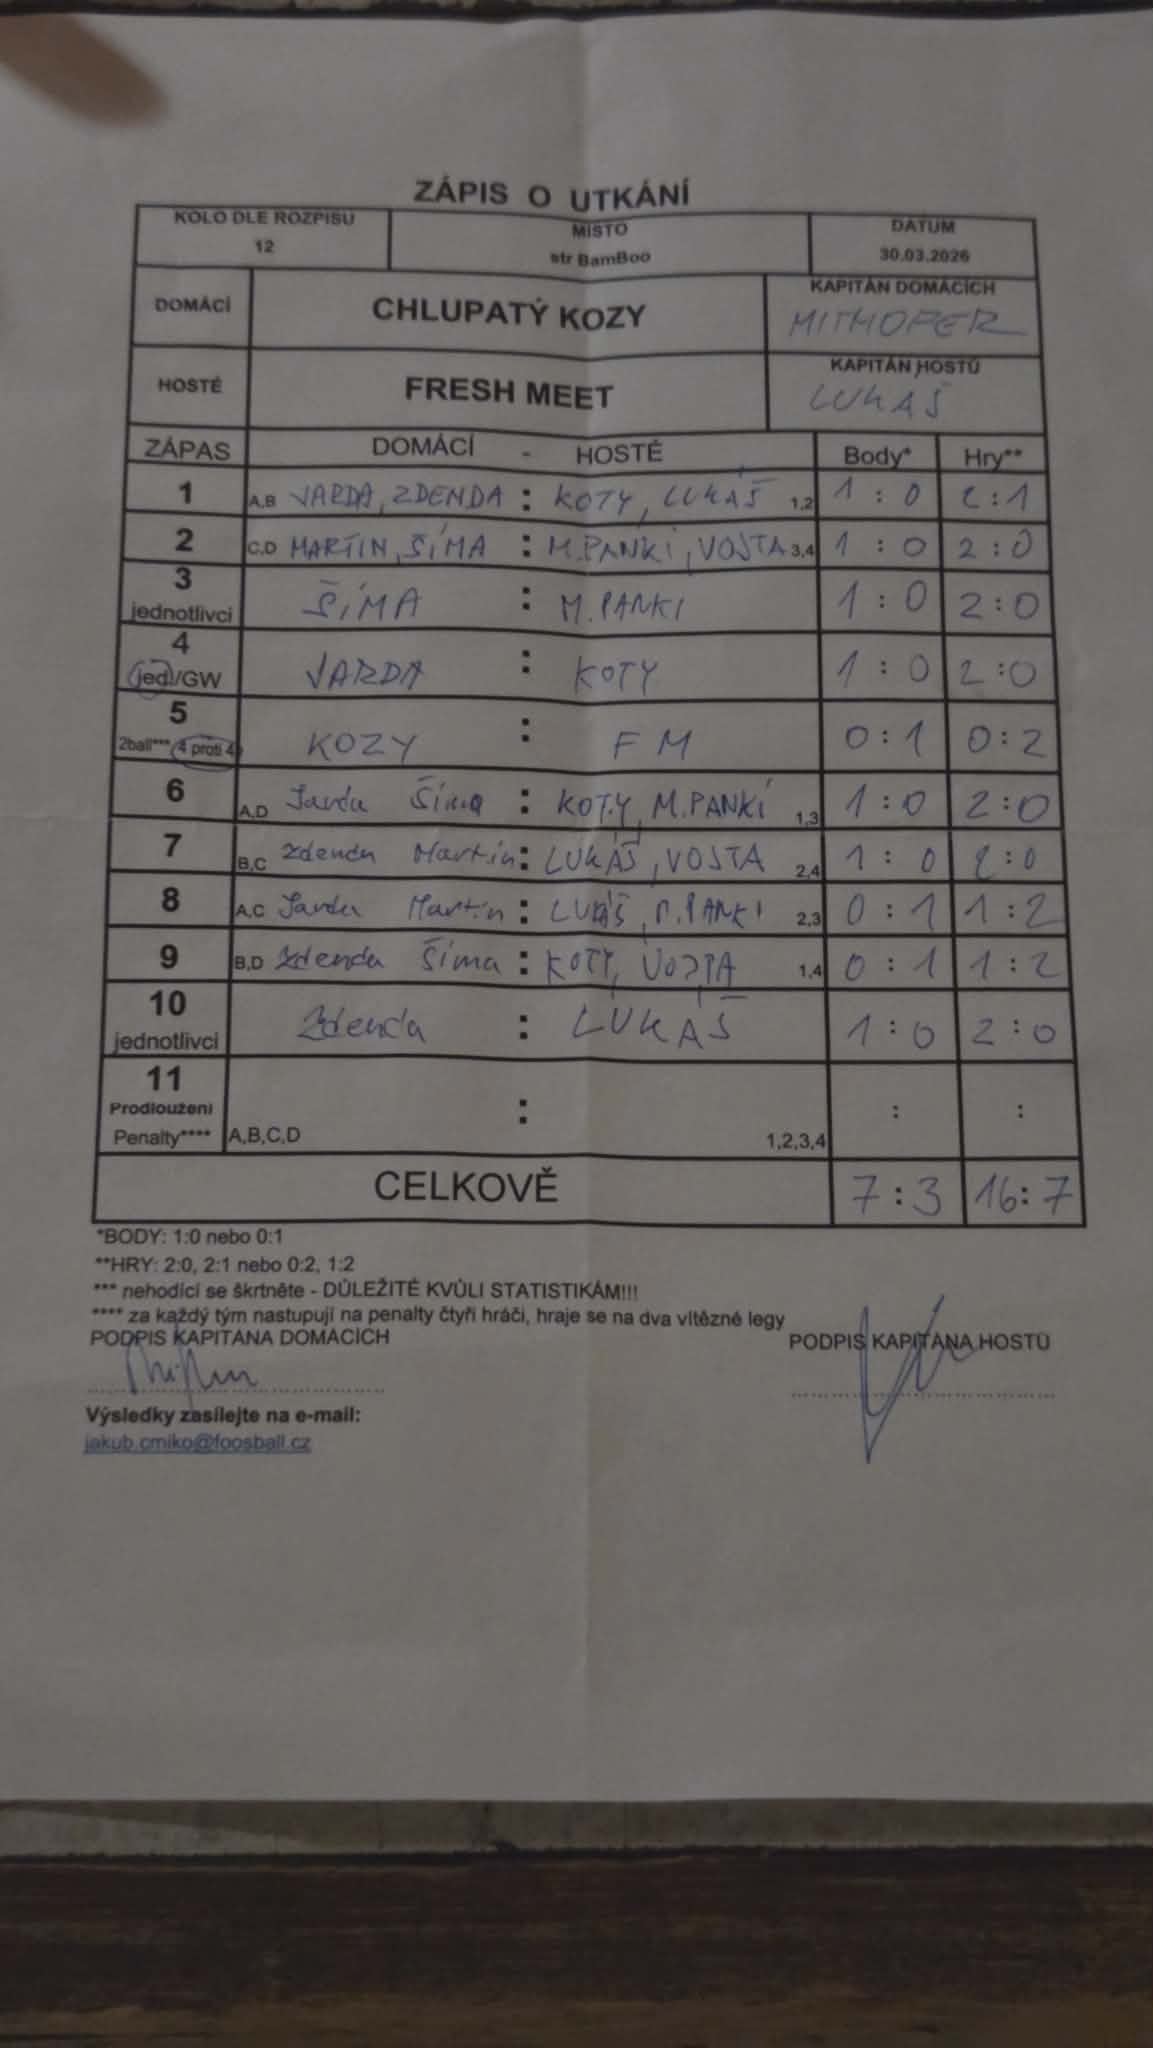 ZÁPIS O UTKÁNÍ
KOLO DLE ROZPISU MÍSTO DATUM
12 str BamBoo 30.03.2026
DOMÁCÍ CHLUPATÝ KOZY KAPITÁN DOMÁCÍCH
MITHOFER
HOSTÉ FRESH MEET KAPITÁN HOSTŮ
LUKÁŠ
ZÁPAS DOMÁCÍ - HOSTÉ Body* Hry**
1 A,B JARDA, ZDENDA : KOTY, LUKÁŠ 1,2 1 : 0 2 : 1
2 C,D MARTIN, ŠÍMA : M.PANKÍ, VOJTA 3,4 1 : 0 2 : 0
3 jednotlivci ŠÍMA : M.PANKI 1 : 0 2 : 0
4 jed./GW JARDA : KOTY 1 : 0 2 : 0
5 2ball*** 4 proti 4 KOZY : FM 0 : 1 0 : 2
6 A,D Jarda Šíma : KOTY, M.PANKÍ 1,3 1 : 0 2 : 0
7 B,C Zdenda Martin : LUKÁŠ, VOJTA 2,4 1 : 0 2 : 0
8 A,C Jarda Martin : LUKÁŠ, M.PANKI 2,3 0 : 1 1 : 2
9 B,D Zdenda Šíma : KOTY, VOJTA 1,4 0 : 1 1 : 2
10 jednotlivci Zdenda : LUKÁŠ 1 : 0 2 : 0
11 Prodloužení Penalty**** A,B,C,D : 1,2,3,4 : :
CELKOVĚ 7 : 3 16 : 7
*BODY: 1:0 nebo 0:1
**HRY: 2:0, 2:1 nebo 0:2, 1:2
*** nehodící se škrtněte - DŮLEŽITÉ KVŮLI STATISTIKÁM!!!
**** za každý tým nastupují na penalty čtyři hráči, hraje se na dva vítězné legy
PODPIS KAPITÁNA DOMÁCÍCH PODPIS KAPITÁNA HOSTŮ
Výsledky zasílejte na e-mail:
jakub.cmiko@foosball.cz